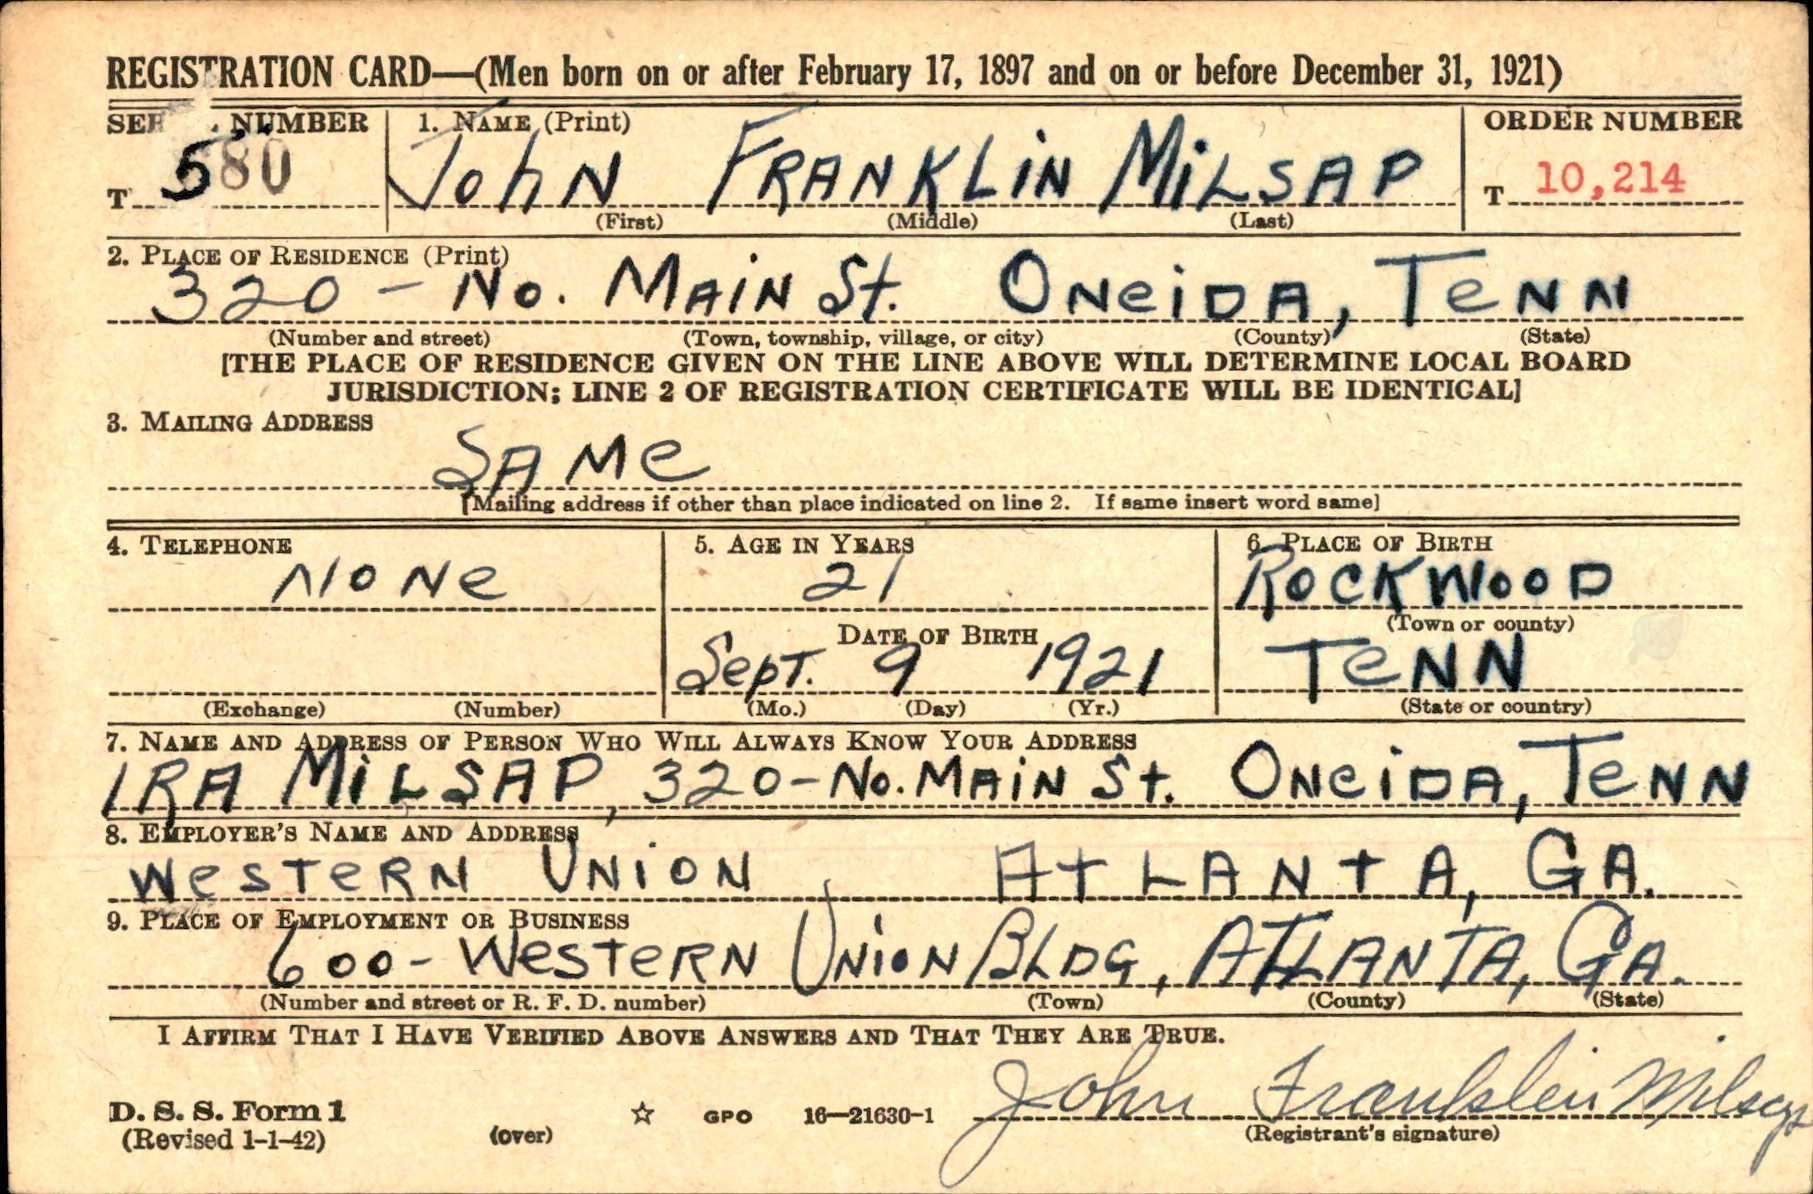 REGISTRATION CARD—(Men born on or after February 17, 1897 and on or before December 31, 1921)
NUMBER 1. NAME (Print) ORDER NUMBER
T 580 JOHN FRANKLIN MILSAP T 10,214
(First) (Middle) (Last)
2. PLACE OF RESIDENCE (Print)
320 - No. MAIN St. ONEIDA, TENN
(Number and street) (Town, township, village, or city) (County) (State)
[THE PLACE OF RESIDENCE GIVEN ON THE LINE ABOVE WILL DETERMINE LOCAL BOARD
JURISDICTION; LINE 2 OF REGISTRATION CERTIFICATE WILL BE IDENTICAL]
3. MAILING ADDRESS
SAME
[Mailing address if other than place indicated on line 2. If same insert word same]
4. TELEPHONE 5. AGE IN YEARS 6. PLACE OF BIRTH
NONE 21 ROCKWOOD
(Town or county)
DATE OF BIRTH
Sept. 9 1921 TENN
(Exchange) (Number) (Mo.) (Day) (Yr.) (State or country)
7. NAME AND ADDRESS OF PERSON WHO WILL ALWAYS KNOW YOUR ADDRESS
IRA MILSAP, 320-No. MAIN St. ONEIDA, TENN
8. EMPLOYER'S NAME AND ADDRESS
WESTERN UNION ATLANTA, GA.
9. PLACE OF EMPLOYMENT OR BUSINESS
600-WESTERN UNION BLDG, ATLANTA, GA.
(Number and street or R. F. D. number) (Town) (County) (State)
I AFFIRM THAT I HAVE VERIFIED ABOVE ANSWERS AND THAT THEY ARE TRUE.
John Franklin Milsap
D. S. S. Form 1 GPO 16—21630-1
(Revised 1-1-42) (over) (Registrant's signature)